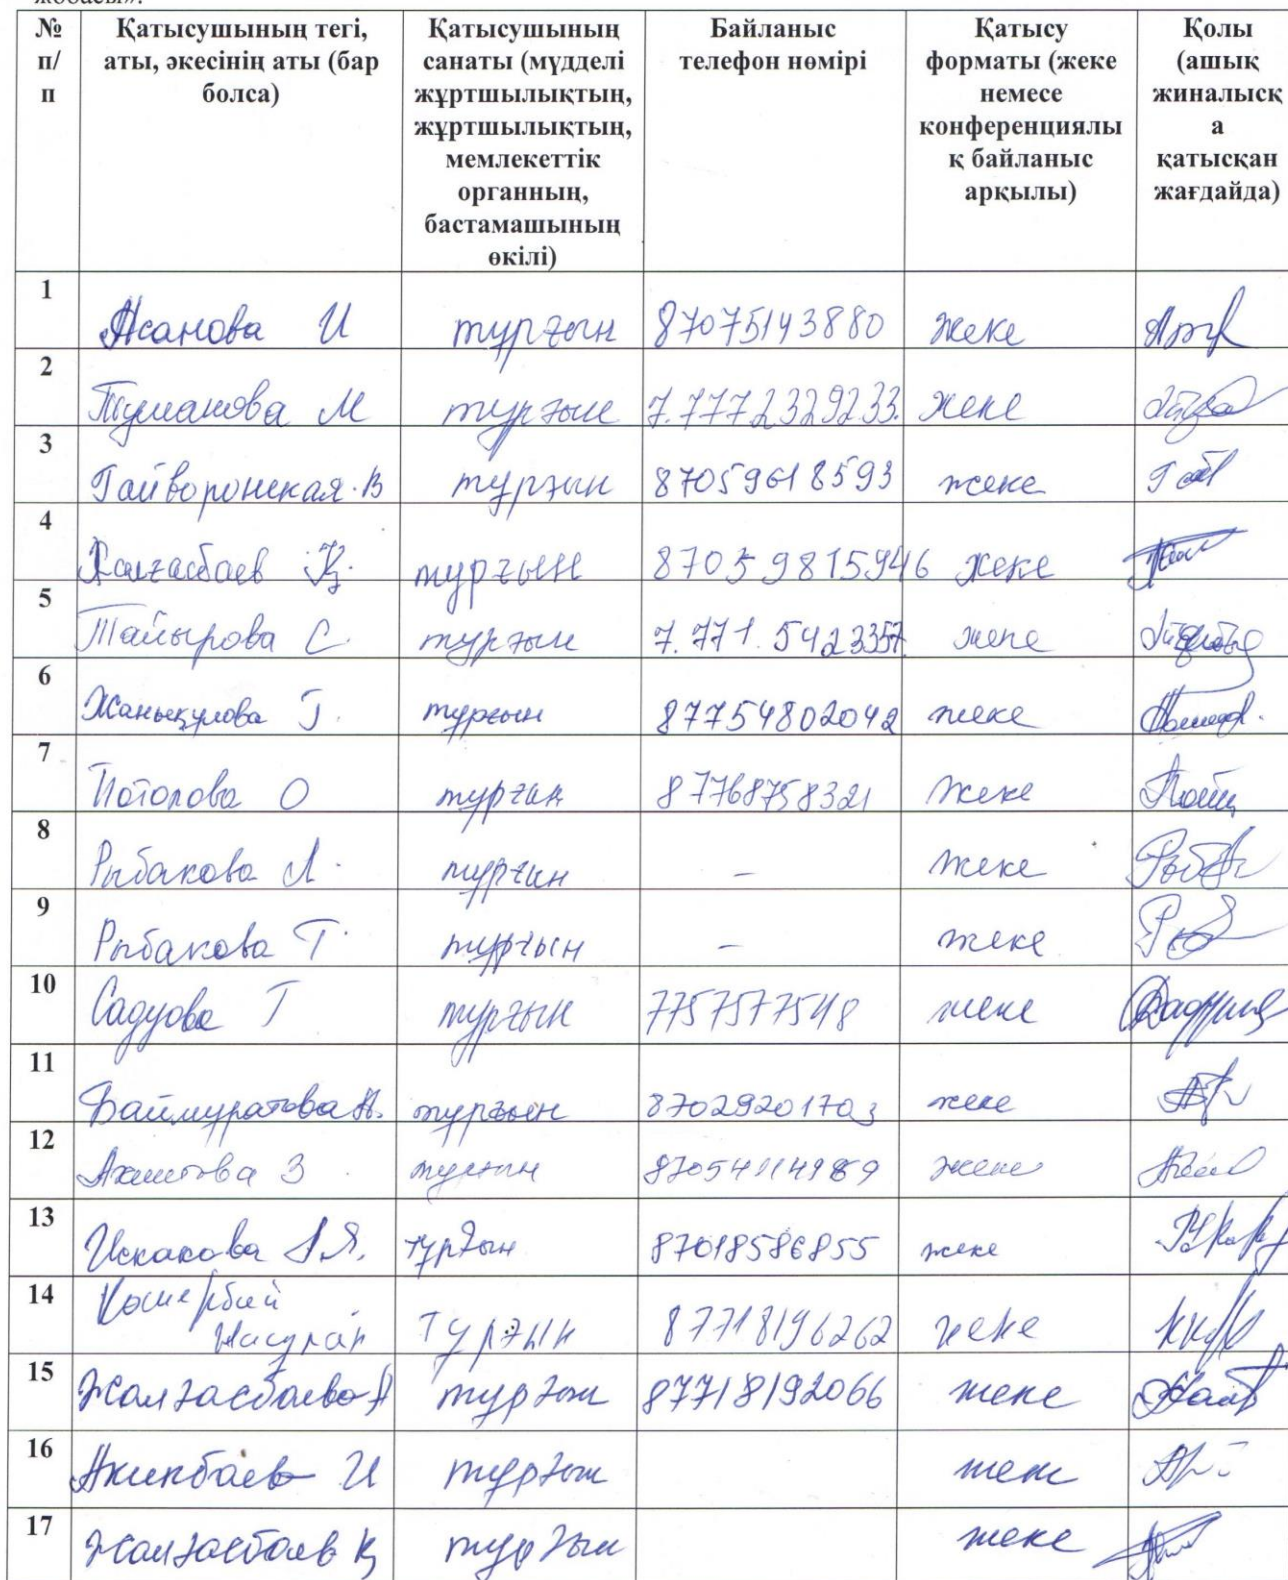 жобасы».
№ п/п
Қатысушының тегі, аты, әкесінің аты (бар болса)
Қатысушының санаты (мүдделі жұртшылықтың, жұртшылықтың, мемлекеттік органның, бастамашының өкілі)
Байланыс телефон нөмірі
Қатысу форматы (жеке немесе конференциялық байланыс арқылы)
Қолы (ашық жиналысқа қатысқан жағдайда)
1 Асанова И тұрғын 87075143880 жеке
2 Туманова М тұрғын 7.7772329233. жеке
3 Гайворонская.В тұрғын 87059618593 жеке
4 Жалғасбаев Қ. тұрғын 87059815946 жеке
5 Тайырова С. тұрғын 7.771.5423357. жеке
6 Жанықұлова Г. тұрғын 87754802042 жеке
7 Потопова О тұрғын 87768758321 жеке
8 Рыбакова Л. тұрғын – жеке
9 Рыбакова Т. тұрғын – жеке
10 Садуова Г тұрғын 7757577548 жеке
11 Баймуратова А. тұрғын 87029201703 жеке
12 Ахметова З. тұрғын 87054114989 жеке
13 Искакова А.Я. тұрғын 87018586855 жеке
14 тұрғын 87718196262 жеке
15 Жалғасбаева А тұрғын 87718192066 жеке
16 Акипбаев И тұрғын жеке
17 Жалғасбаев Қ тұрғын жеке